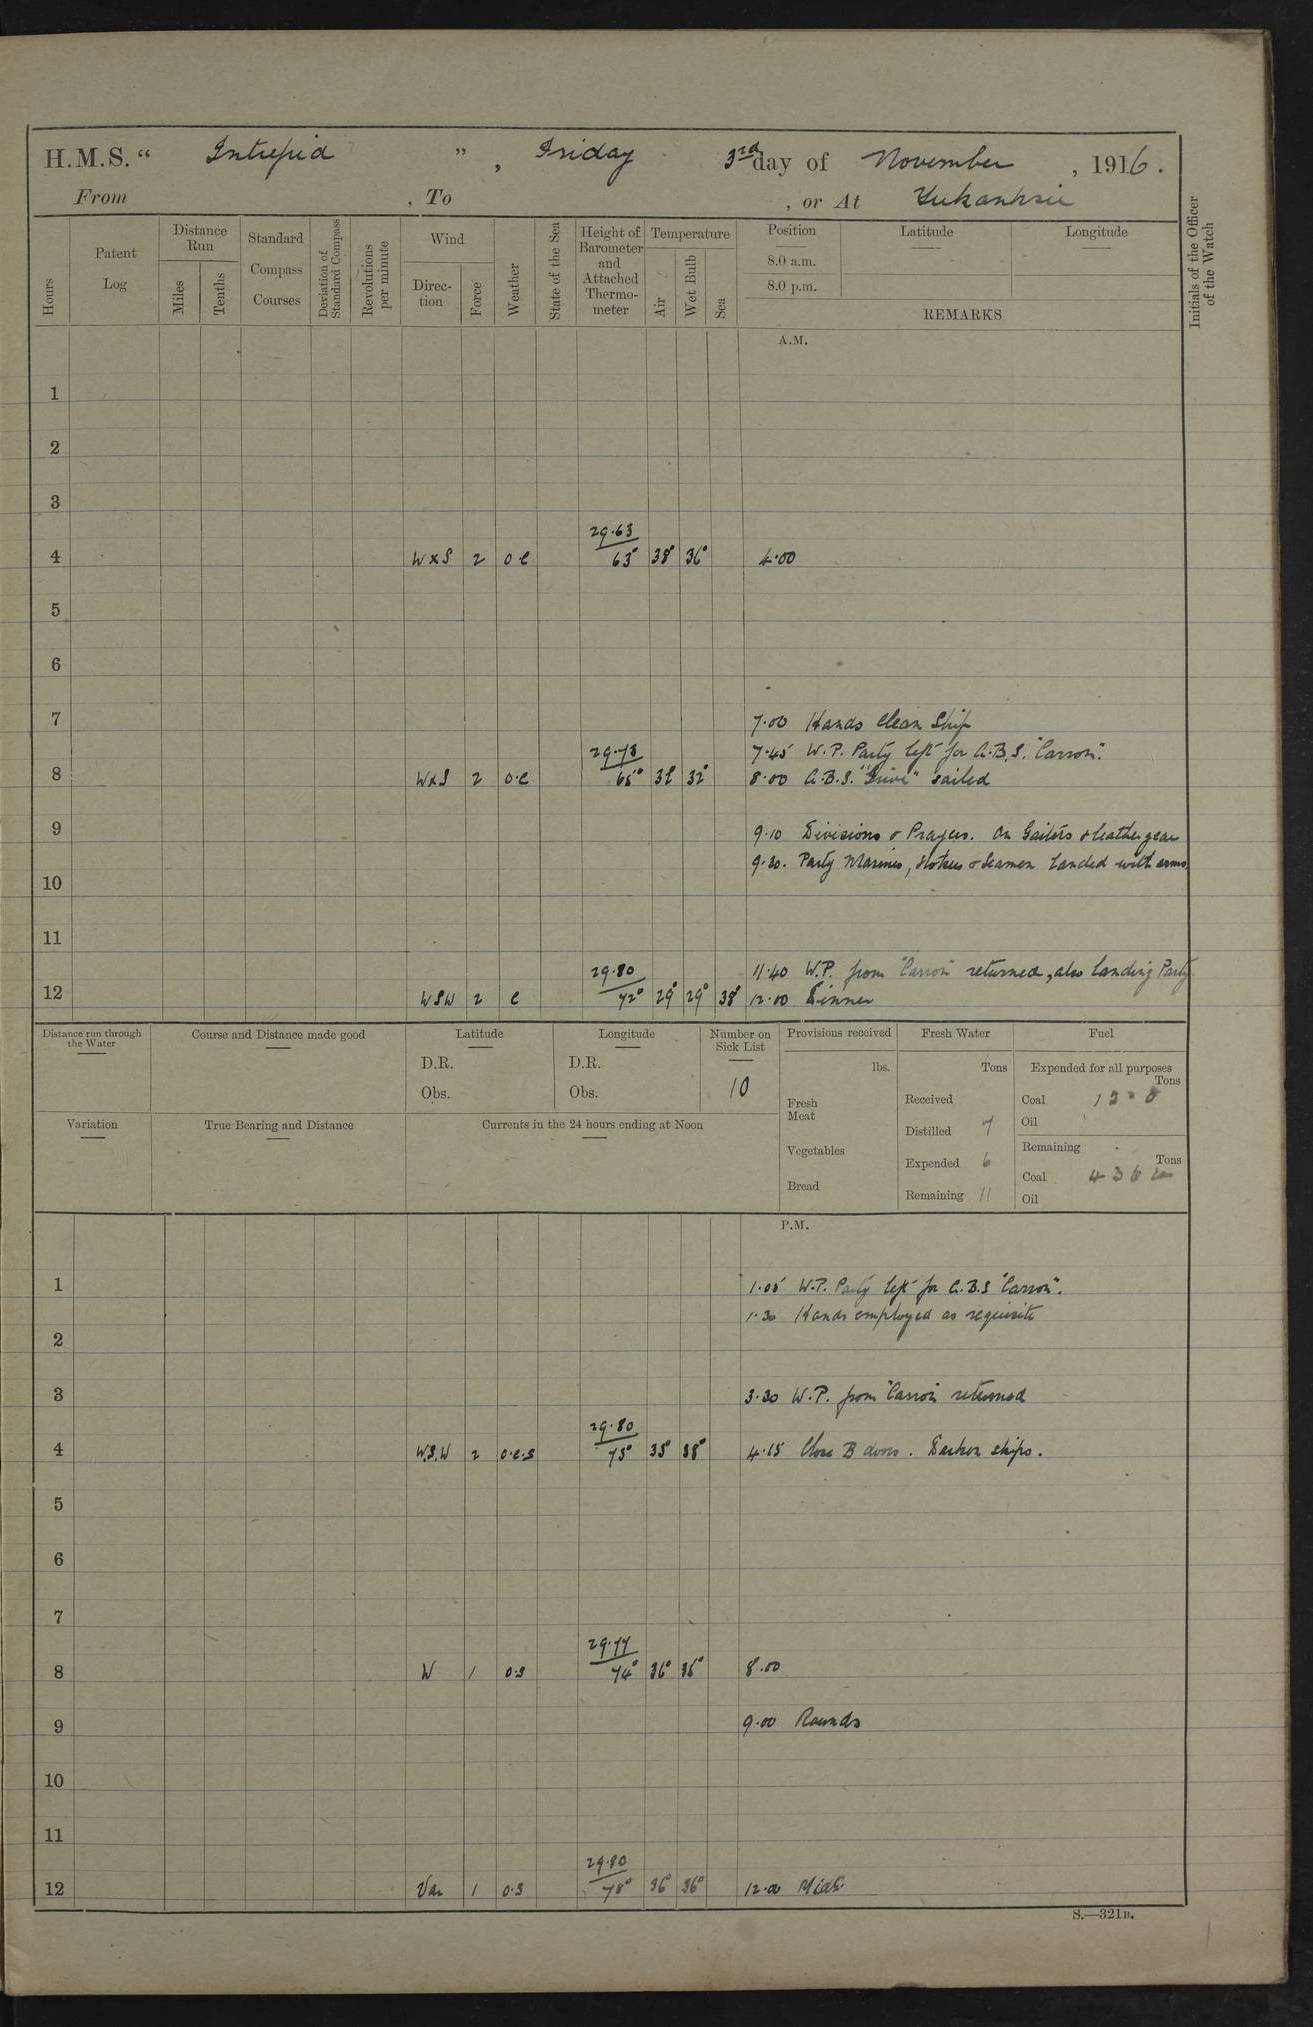 H.M.S. “ Intrepid ” , Friday 3rd day of November , 1916.
From , To , or At Yukanskie
Hours
Patent Log
Distance Run
Miles
Tenths
Standard Compass Courses
Deviation of Standard Compass
Revolutions per minute
Wind
Direction
Force
Weather
State of the Sea
Height of Barometer and Attached Thermometer
Temperature
Air
Wet Bulb
Sea
Position
8.0 a.m.
8.0 p.m.
Latitude
Longitude
REMARKS
Initials of the Officer of the Watch
A.M.
1
2
3
29.63
4 WxS 2 o.c 63° 38° 36° 4.00
5
6
7 7.00 Hands clean Ship
29.73 7.45 W.P. Party left for A.B.S. "Carron".
8 WxS 2 o.c 65° 32° 32° 8.00 A.B.S. "Grive" sailed
9 9.10 Divisions & Prayers. On Gaiters & leather gear
9.20. Party Marines, Stokers & Seamen landed with arms
10
11
29.80 11.40 W.P. from "Carron" returned, also landing Party
12 WSW 2 c 72° 29° 29° 38° 12.00 Dinner
Distance run through the Water
Course and Distance made good
Latitude
D.R.
Obs.
Longitude
D.R.
Obs.
Number on Sick List
10
Provisions received
lbs.
Fresh Meat
Vegetables
Bread
Fresh Water
Tons
Received
Distilled 7
Expended 6
Remaining 11
Fuel
Expended for all purposes
Tons
Coal
Oil
Remaining
Tons
Coal
Oil
Variation
True Bearing and Distance
Currents in the 24 hours ending at Noon
P.M.
1 1.05 W.P. Party left for A.B.S "Carron".
1.30 Hands employed as requisite
2
3 3.20 W.P. from "Carron" returned
29.80
4 W.S.W 2 o.c.s 75° 38° 4.15 Close B doors. Darken ships.
5
6
7
29.77
8 W 1 o.s 74° 36° 36° 8.00
9 9.00 Rounds
10
11
29.80
12 Var 1 o.s 78° 36° 36° 12.00 Midt.
S.—321B.